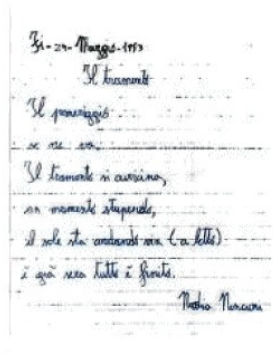 Fi-24-Maggio-1993
Il tramonto
Il pomeriggio
se ne va.
Il tramonto si avvicina,
un momento stupendo,
il sole sta andando via (a letto)
è già sera tutto è finito.